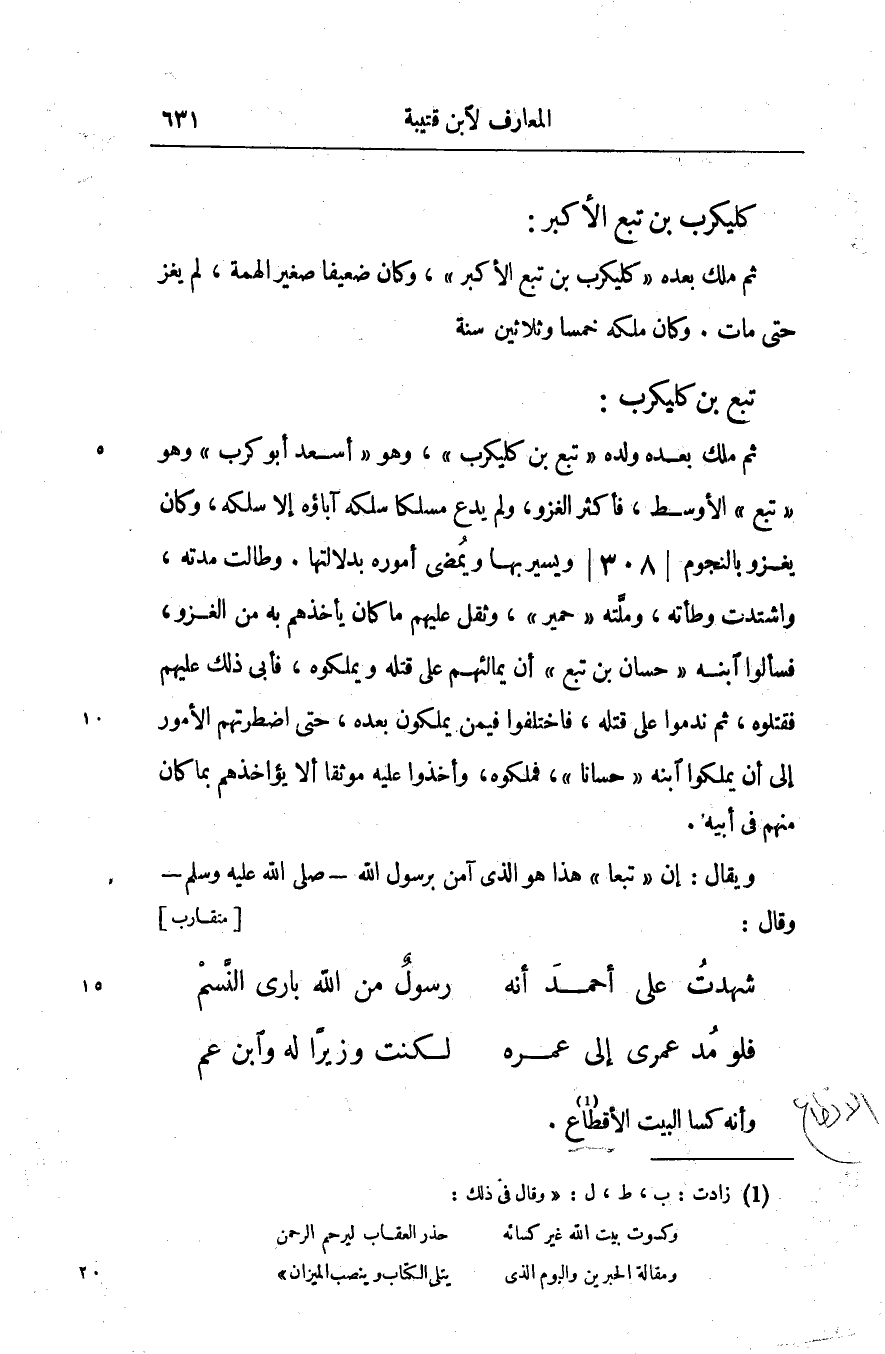 المعارف لآبن قتيبة ٦٣١
كليكرب بن تبع الأكبر :
ثم ملك بعده « كليكرب بن تبع الأكبر » ، وكان ضعيفا صغير الهمة ، لم يغز
حتى مات . وكان ملكه خمسا وثلاثين سنة
تبع بن كليكرب :
ثم ملك بعده ولده « تبع بن كليكرب » ، وهو « أسعد أبو كرب » وهو ٥
« تبع » الأوسط ، فأكثر الغزو، ولم يدع مسلكا سلكه آباؤه إلا سلكه، وكان
يغزو بالنجوم | ٣٠٨ | ويسير بها ويُمضى أموره بدلالتها . وطالت مدته ،
واشتدت وطأته ، وملَّته « حمير » ، وثقل عليهم ما كان يأخذهم به من الغزو،
فسألوا آبنه « حسان بن تبع » أن يمالئهم على قتله ويملكوه ، فأبى ذلك عليهم
فقتلوه ، ثم ندموا على قتله ، فاختلفوا فيمن يملكون بعده ، حتى اضطرتهم الأمور ١٠
إلى أن يملكوا آبنه « حسانا »، فملكوه، وأخذوا عليه موثقا ألا يؤاخذهم بما كان
منهم فى أبيه .
ويقال : إن « تبعا » هذا هو الذى آمن برسول الله — صلى الله عليه وسلم —
وقال : [ متقارب ]
شهدتُ على أحمدَ أنه رسولٌ من الله بارى النَّسمْ ١٥
فلو مُد عمرى إلى عمره لكنت وزيرًا له وآبن عم
وأنه كسا البيت الأقطاع (1) .
(1) زادت : ب ، ط ، ل : « وقال فى ذلك :
وكسوت بيت الله غير كسائه حذر العقاب ليرحم الرحمن
ومقالة الحبرين واليوم الذى يتلى الكتاب وينصب الميزان» ٢٠